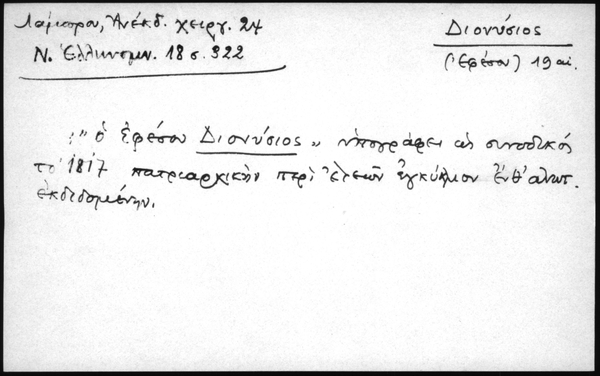 Λάμπρου, Ἀνέκδ. χειργ. 24
Ν. Ἑλληνομν. 18 σ. 322
Διονύσιος
(Ἐφέσου) 19 αἰ.
"ὁ Ἐφέσου Διονύσιος" ὑπογράφει ὡς συνοδικός
τὸ 1817 πατριαρχικὴν περὶ ἐγκύκλιον ἐνθ' ἀνωτ.
ἐκδιδομένην.